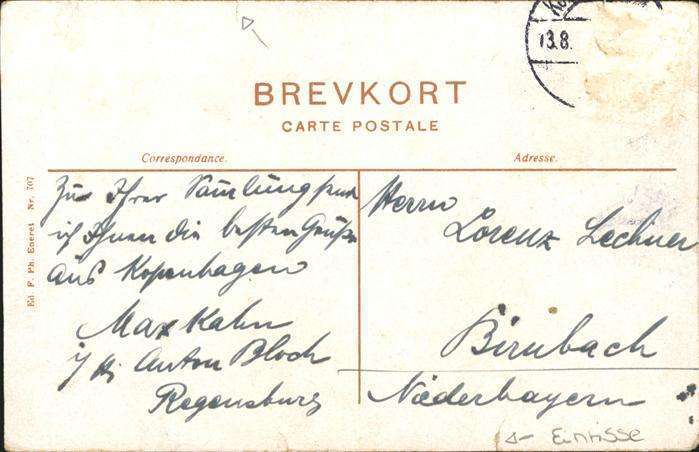 13.8.
BREVKORT
CARTE POSTALE
Correspondance.
Adresse.
Ed. F. Ph. Eneret Nr. 707
Zu Ihrer Samlung send
ich Ihnen die besten Grüße
aus Kopenhagen
Max Kahn
Anton Bloch
Regensburg
Herrn
Lorenz Lechner
Birnbach
Niederbayern
Einrisse